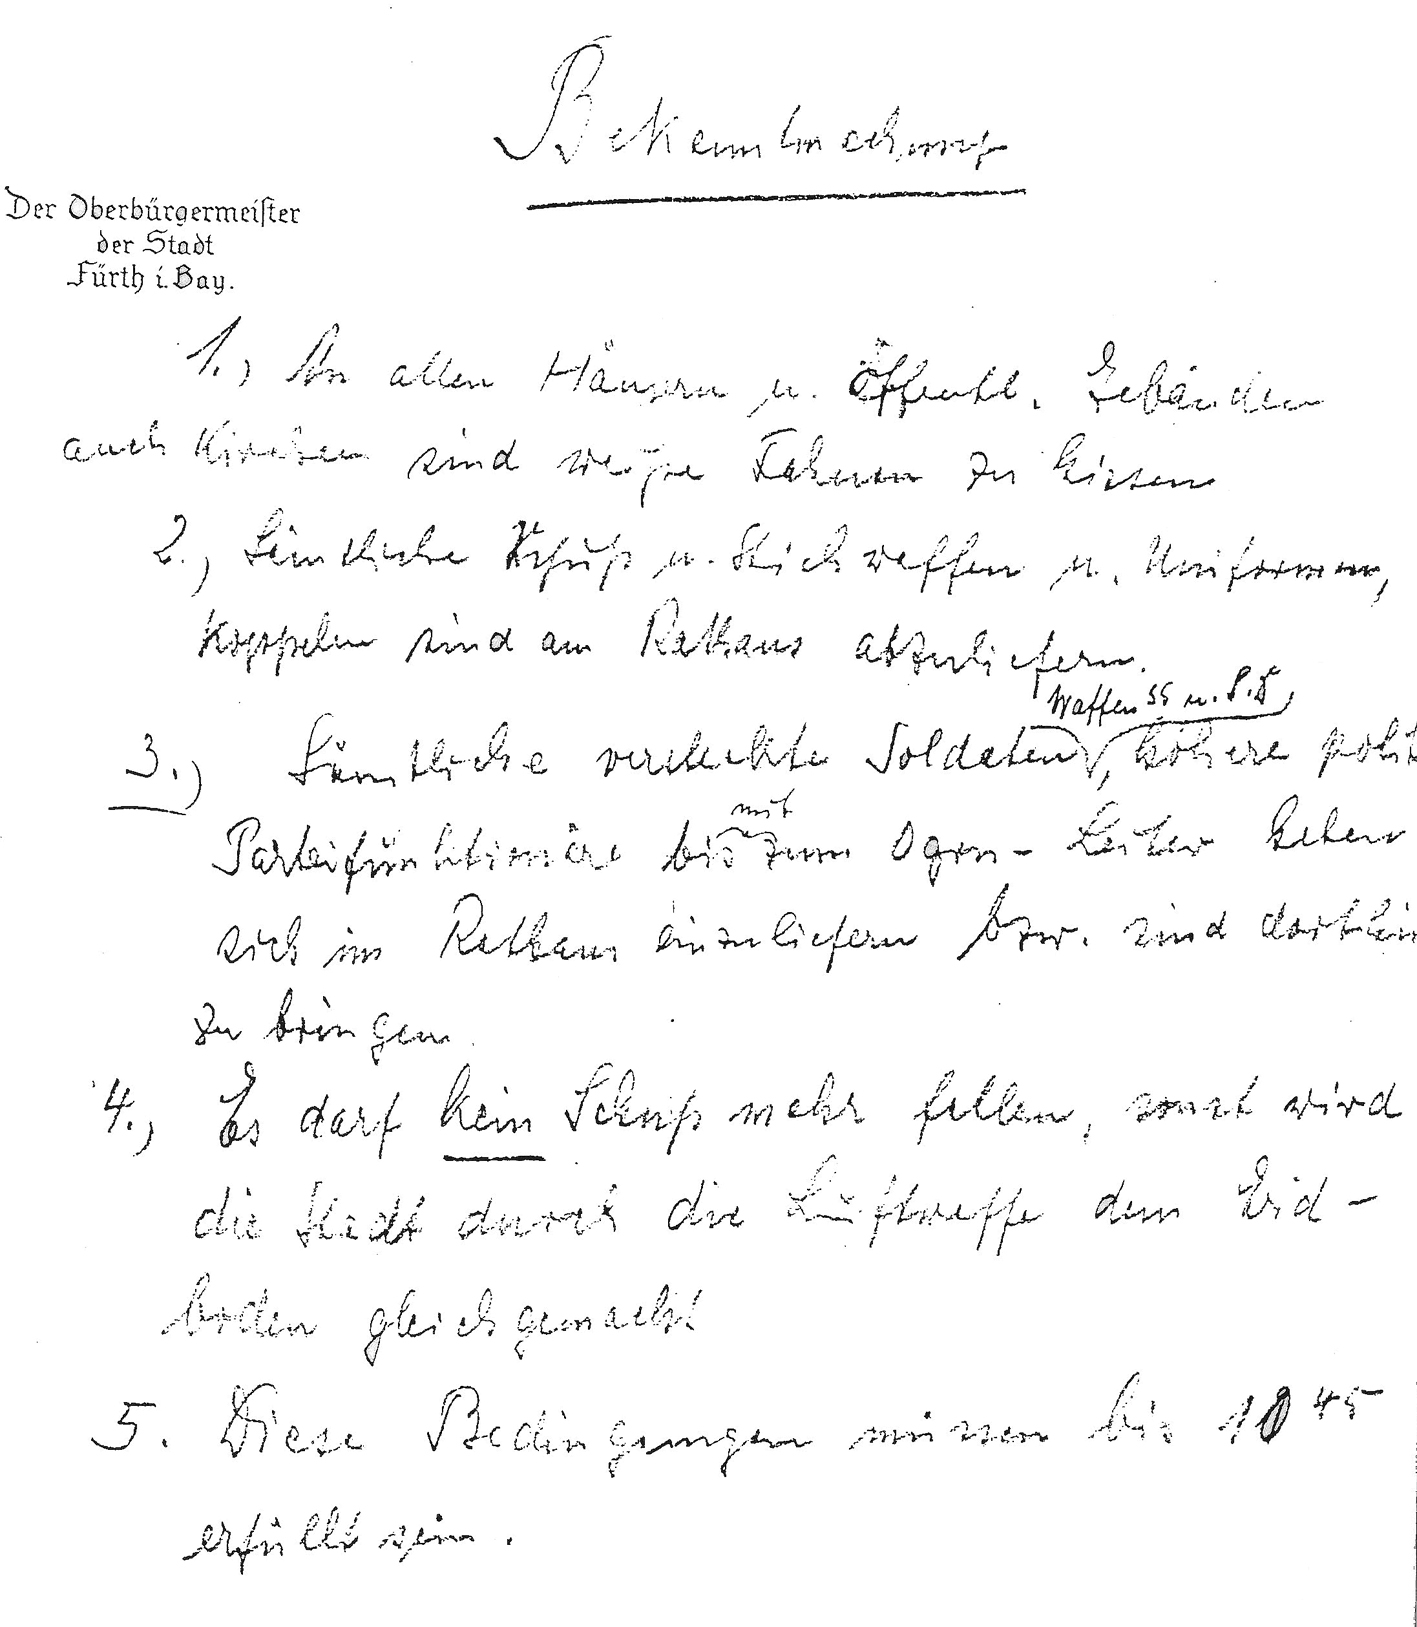 Bekanntmachung
Der Oberbürgermeister
der Stadt
Fürth i. Bay.
1.) An allen Häusern u. Öffentl. Gebäuden
auch Kirchen sind weiße Fahnen zu hissen
2.) Sämtliche Schuß u. Stichwaffen u. Uniformen,
Koppeln sind am Rathaus abzuliefern.
Waffen SS u. S.D,
3.) Sämtliche versteckte Soldaten, höhere polit
mit
Parteifunktionäre bis zum Ogrn-Leiter haben
sich im Rathaus einzuliefern bzw. sind dorthin
zu bringen
4.) Es darf kein Schuß mehr fallen, sonst wird
die Stadt durch die Luftwaffe dem Erd-
boden gleichgemacht
5. Diese Bedingungen müssen bis 10 45
erfüllt sein.